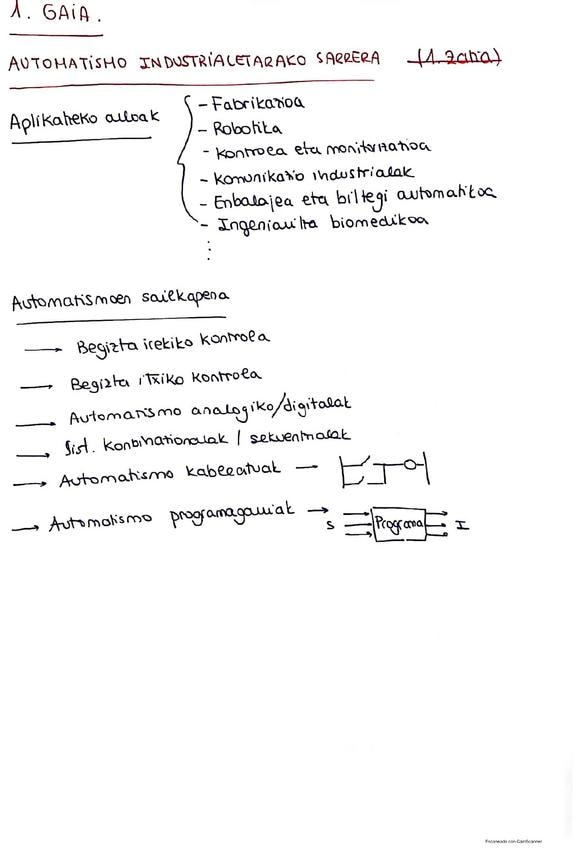 1. GAIA.
AUTOMATISMO INDUSTRIALETARAKO SARRERA (1. zatia)
Aplikazioko arloak
- Fabrikazioa
- Robotika
- Kontrola eta monitorizazioa
- Komunikazio industrialak
- Enbalajea eta biltegi automatikoa
- Ingeniaritza biomedikoa
Automatismoen sailkapena
→ Begizta irekiko kontrola
→ Begizta itxiko kontrola
→ Automatismo analogiko/digitalak
→ Sist. konbinazionalak / sekuentzialak
→ Automatismo kableatuak —
→ Automatismo programagarriak → S Programa I
Escaneado con CamScanner